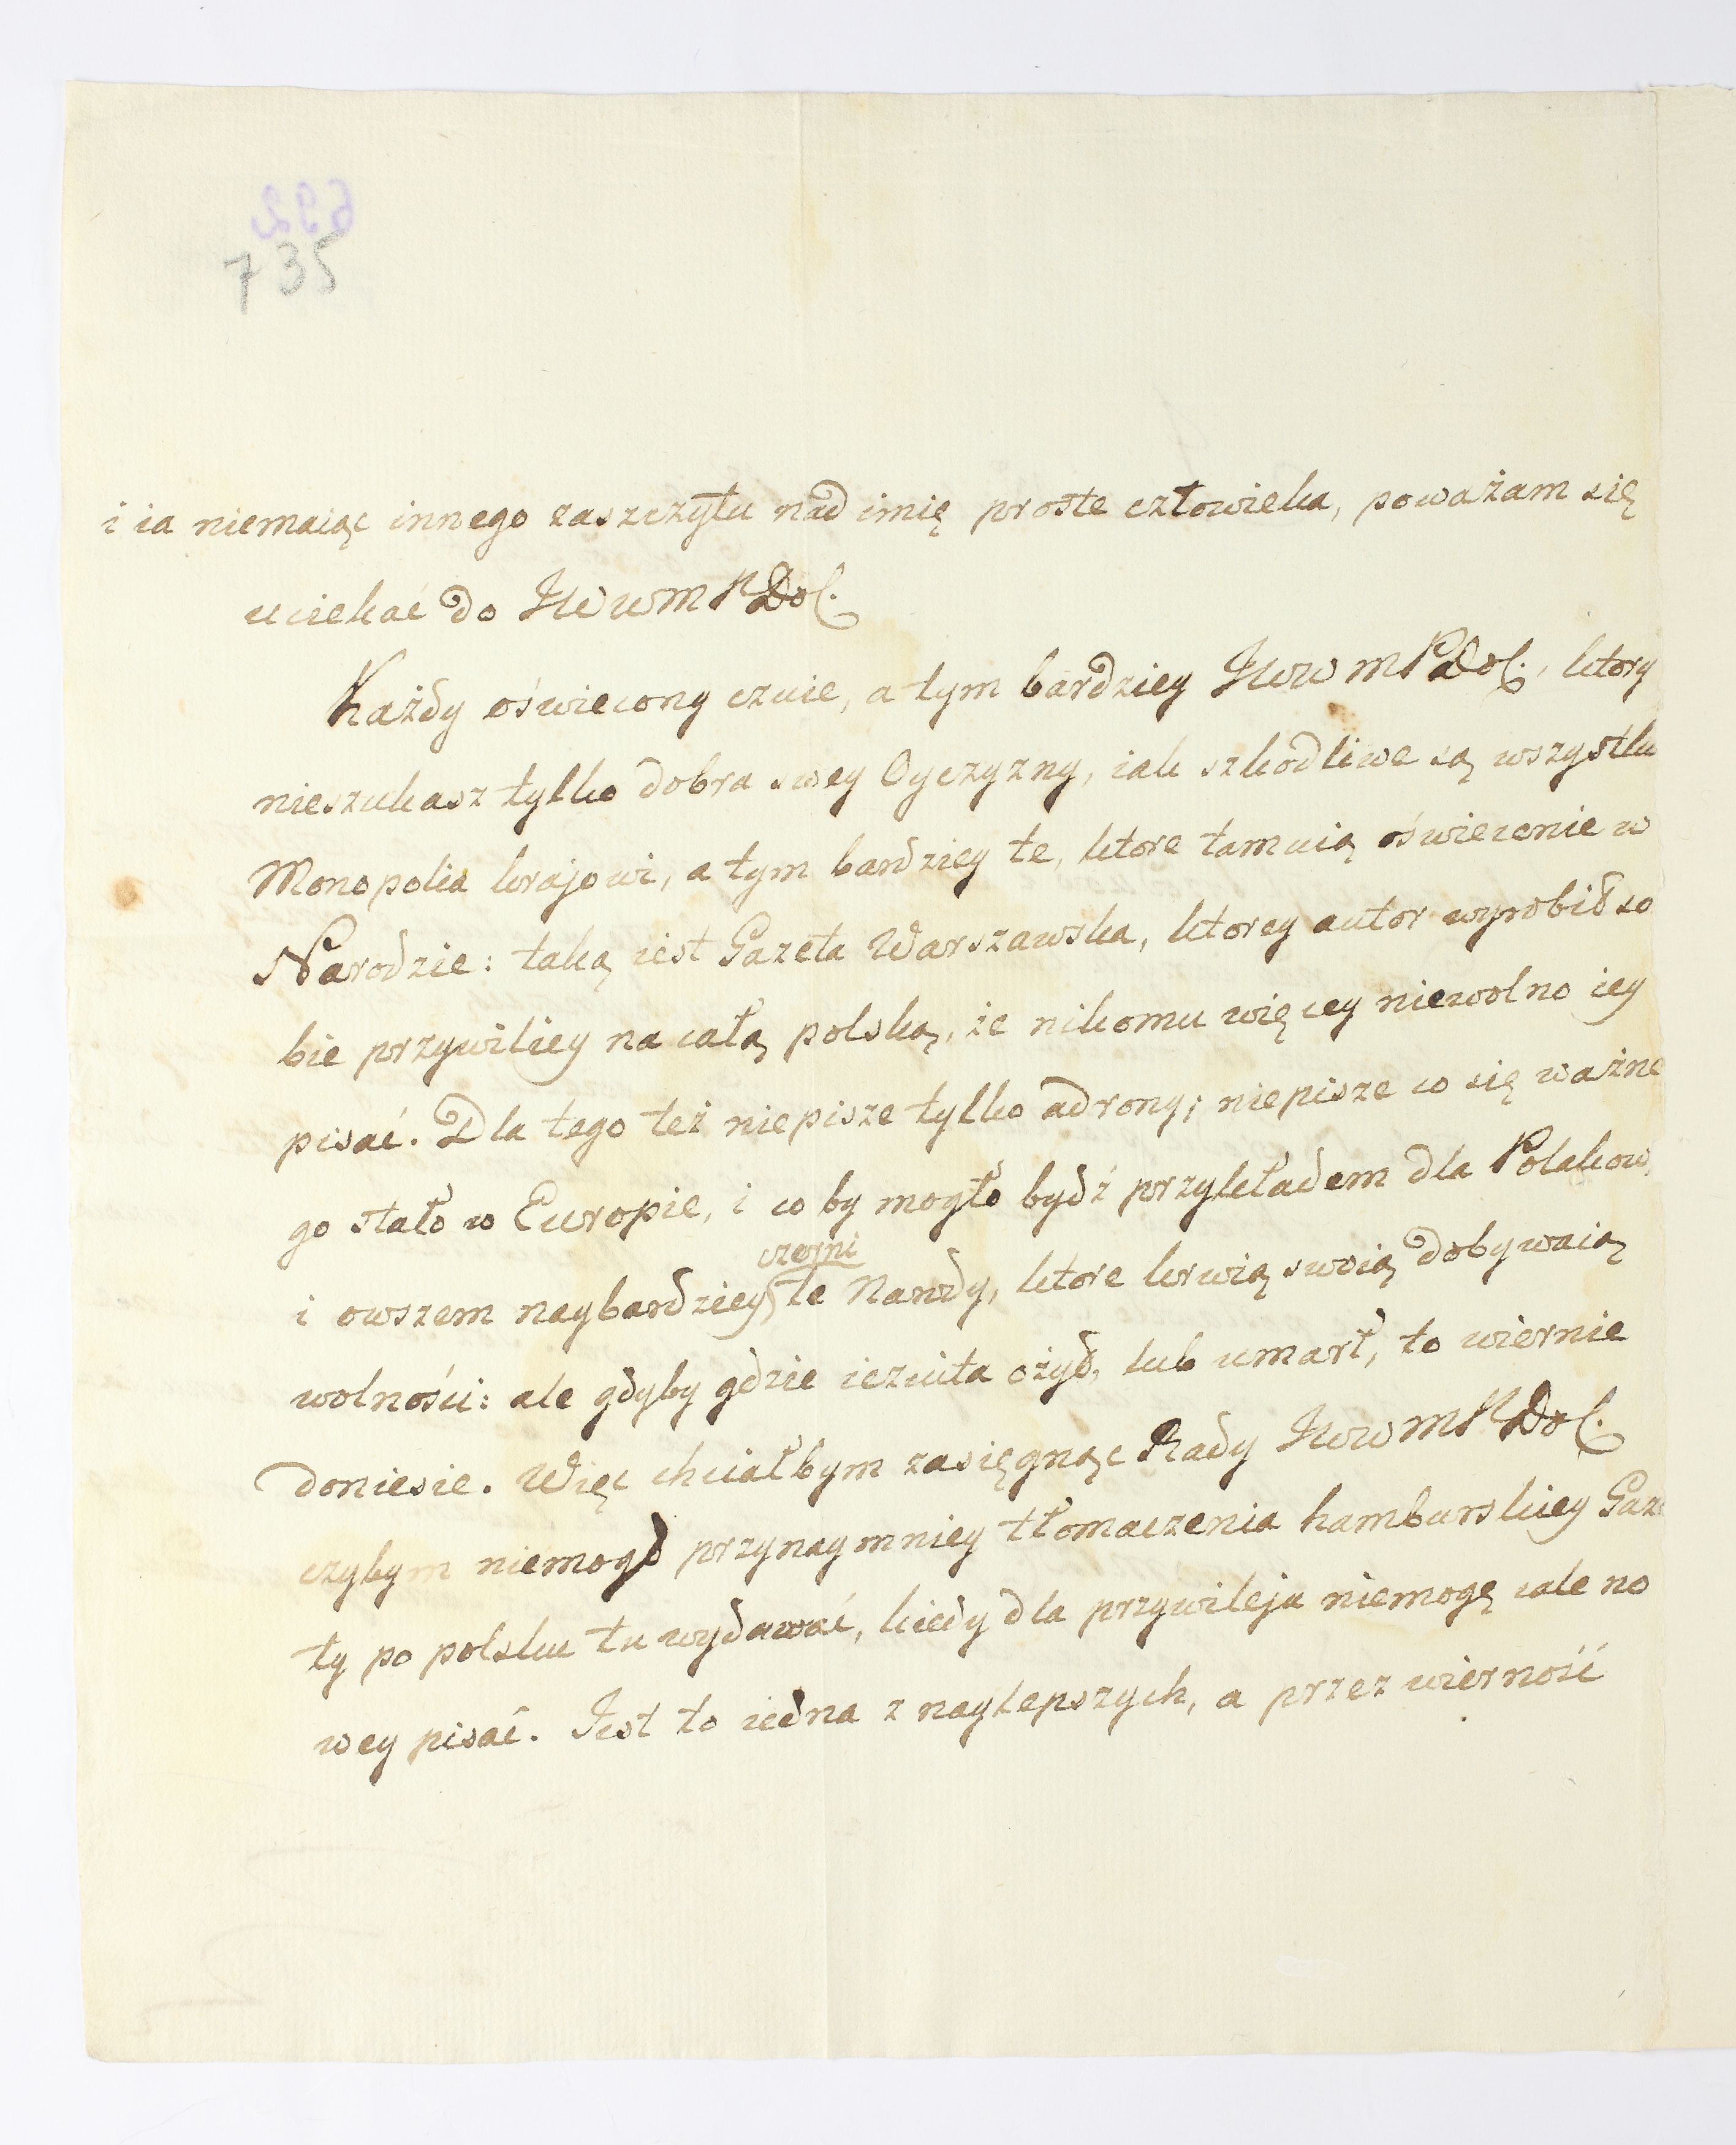 735
i ia niemaiąc innego zaszczytu nad imię proste człowieka, poważam się
uciekać do JWWMPDol.
Każdy oświecony czuie, a tym bardziey JWWMPDol., ktory
nieszukasz tylko dobra swey Oyczyzny, iak szkodliwe są wszystku
Monopolia krajowi, a tym bardziey te, ktore tamuią oświecenie w
Narodzie: taką iest Gazeta Warszawska, ktorey autor wyrobił so
bie przywiliey na całą polską, że nikomu więcey niewolno iey
pisać. Dla tego też niepisze tylko androny; niepisze co się ważne
go stało w Europie, i co by mogło bydź przykładem dla Polakow,
czerni
i owszem naybardziey te Narody, ktore krwią swoią dobywaią
wolności: ale gdyby gdzie iezuita ożył, lub umarł, to wiernie
doniesie. Więc chciałbym zasięgnąc Rady JWWMPDol.
czybym niemogł przynaymniey tłomaczenia hamburskiey Gaze
ty po polsku tu wydawać, kiedy dla przywileju niemogę cale no
wey pisać. Jest to iedna z naylepszych, a przez wierność